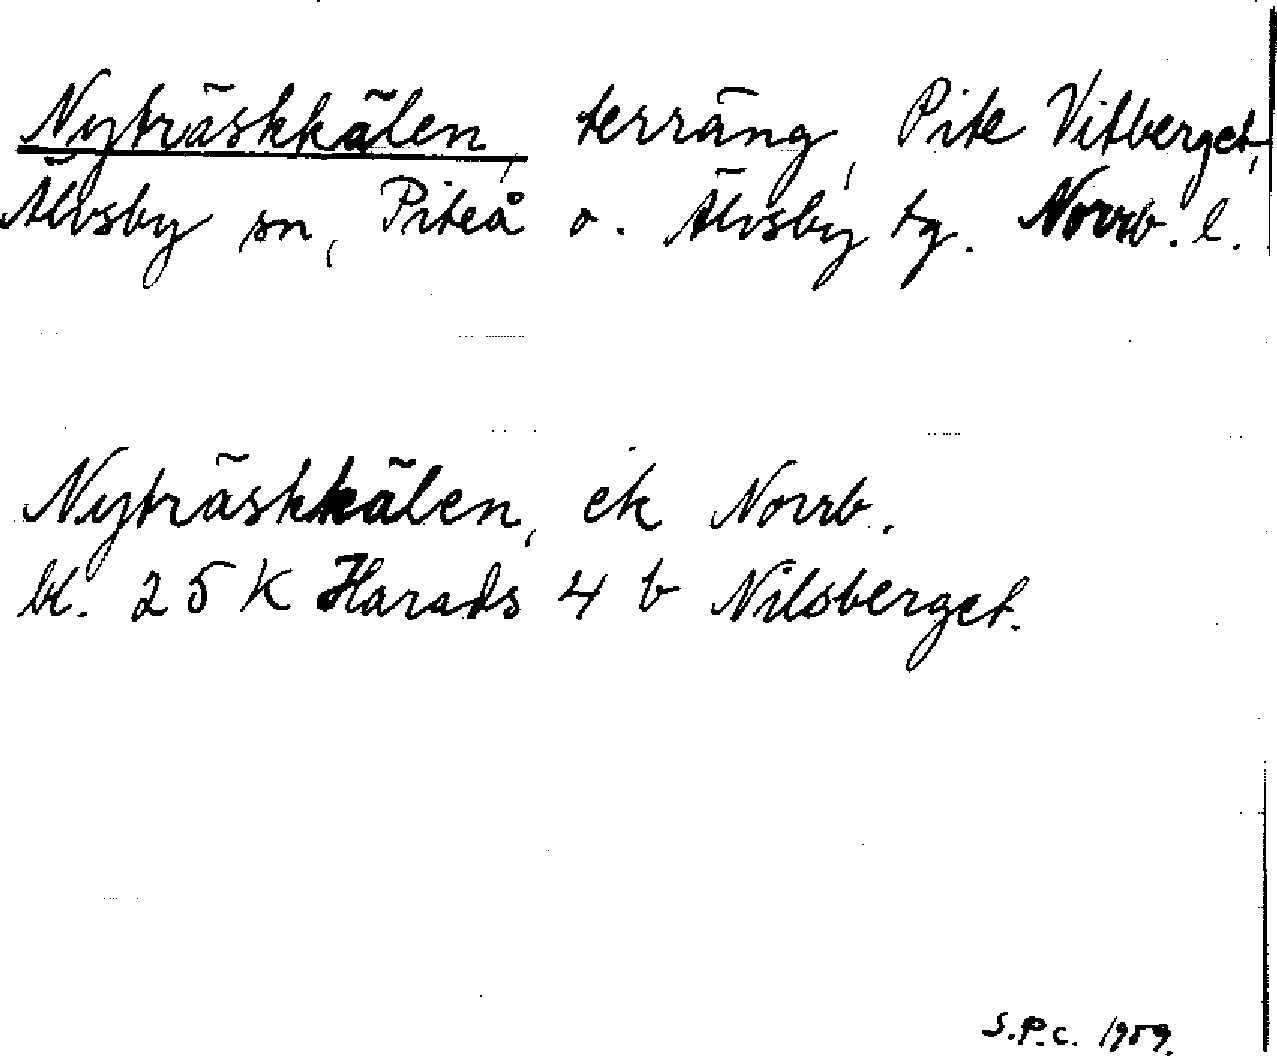 Nyträskkälen, terräng, Pite Vitberget,
Älvsby sn, Piteå o. Älvsby tg. Norrb. l.
Nyträskkälen, ek Norrb.
bl. 25 K Harads 4 b Nilsberget.
S.P.C. 1959.